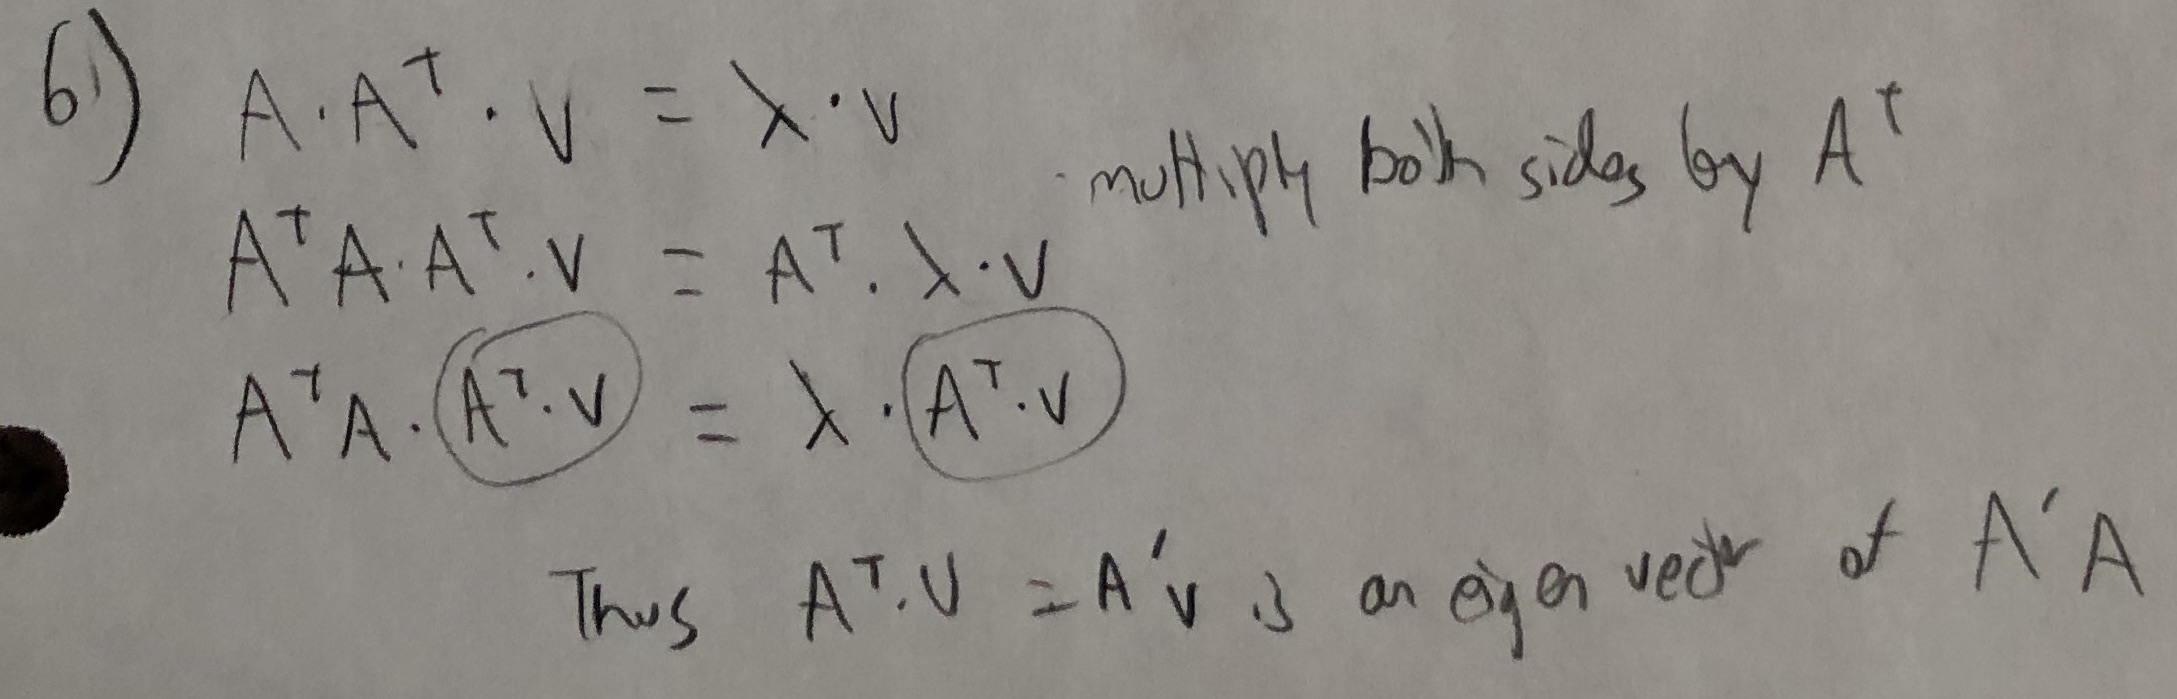 6) A·Aᵀ·V = λ·V
multiply both sides by Aᵀ
AᵀA·Aᵀ·V = Aᵀ·λ·V
AᵀA·Aᵀ·V = λ·Aᵀ·V
Thus Aᵀ·V = A'V is an eigen vector of A'A